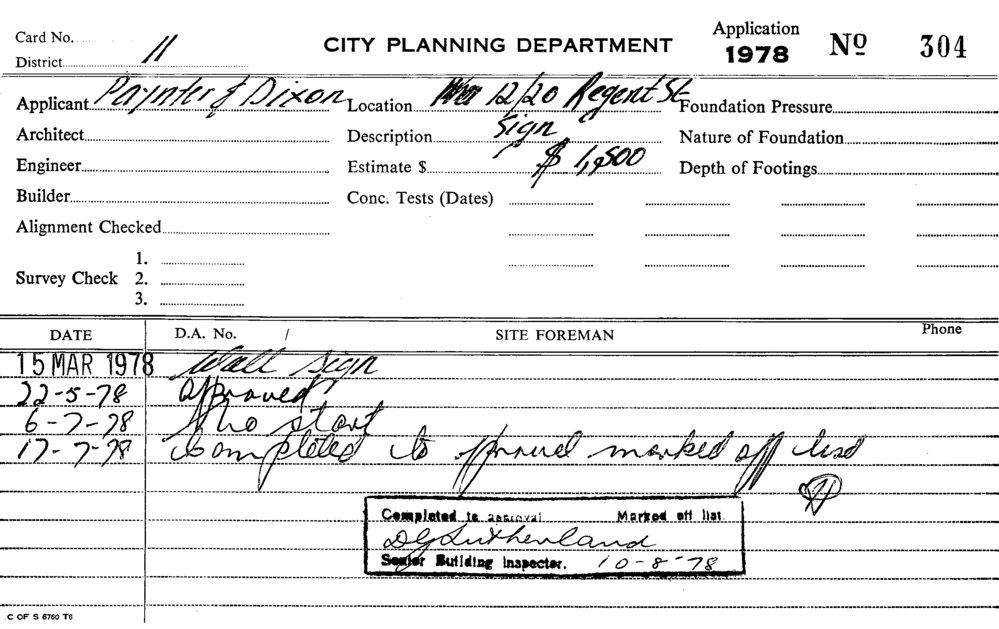 Card No.
District 11
CITY PLANNING DEPARTMENT
Application
1978 Nº 304
Applicant Paynter & Dixon Location 12/20 Regent St Foundation Pressure
Architect Description Sign Nature of Foundation
Engineer Estimate $ $ 1,500 Depth of Footings
Builder Conc. Tests (Dates)
Alignment Checked
1.
Survey Check 2.
3.
DATE D.A. No. / SITE FOREMAN Phone
15 MAR 1978 Wall sign
22-5-78 approved
6-7-78 No start
17-7-78 Completed to approval marked off list
Completed to approval Marked off list.
DG Sutherland
Senior Building Inspector. 10-8-78
C OF S 6760 T6